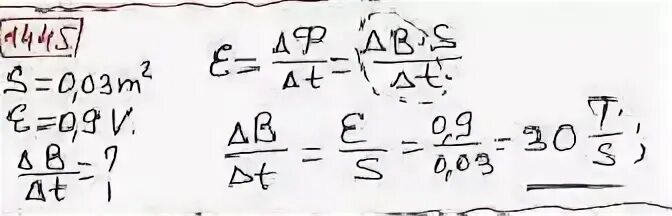 1445.
S = 0,03 m²
ε = 0,9 V.
ΔB/Δt = ?
ε = ΔΦ/Δt = ΔB·S/Δt;
ΔB/Δt = ε/S = 0,9/0,03 = 30 T/S;